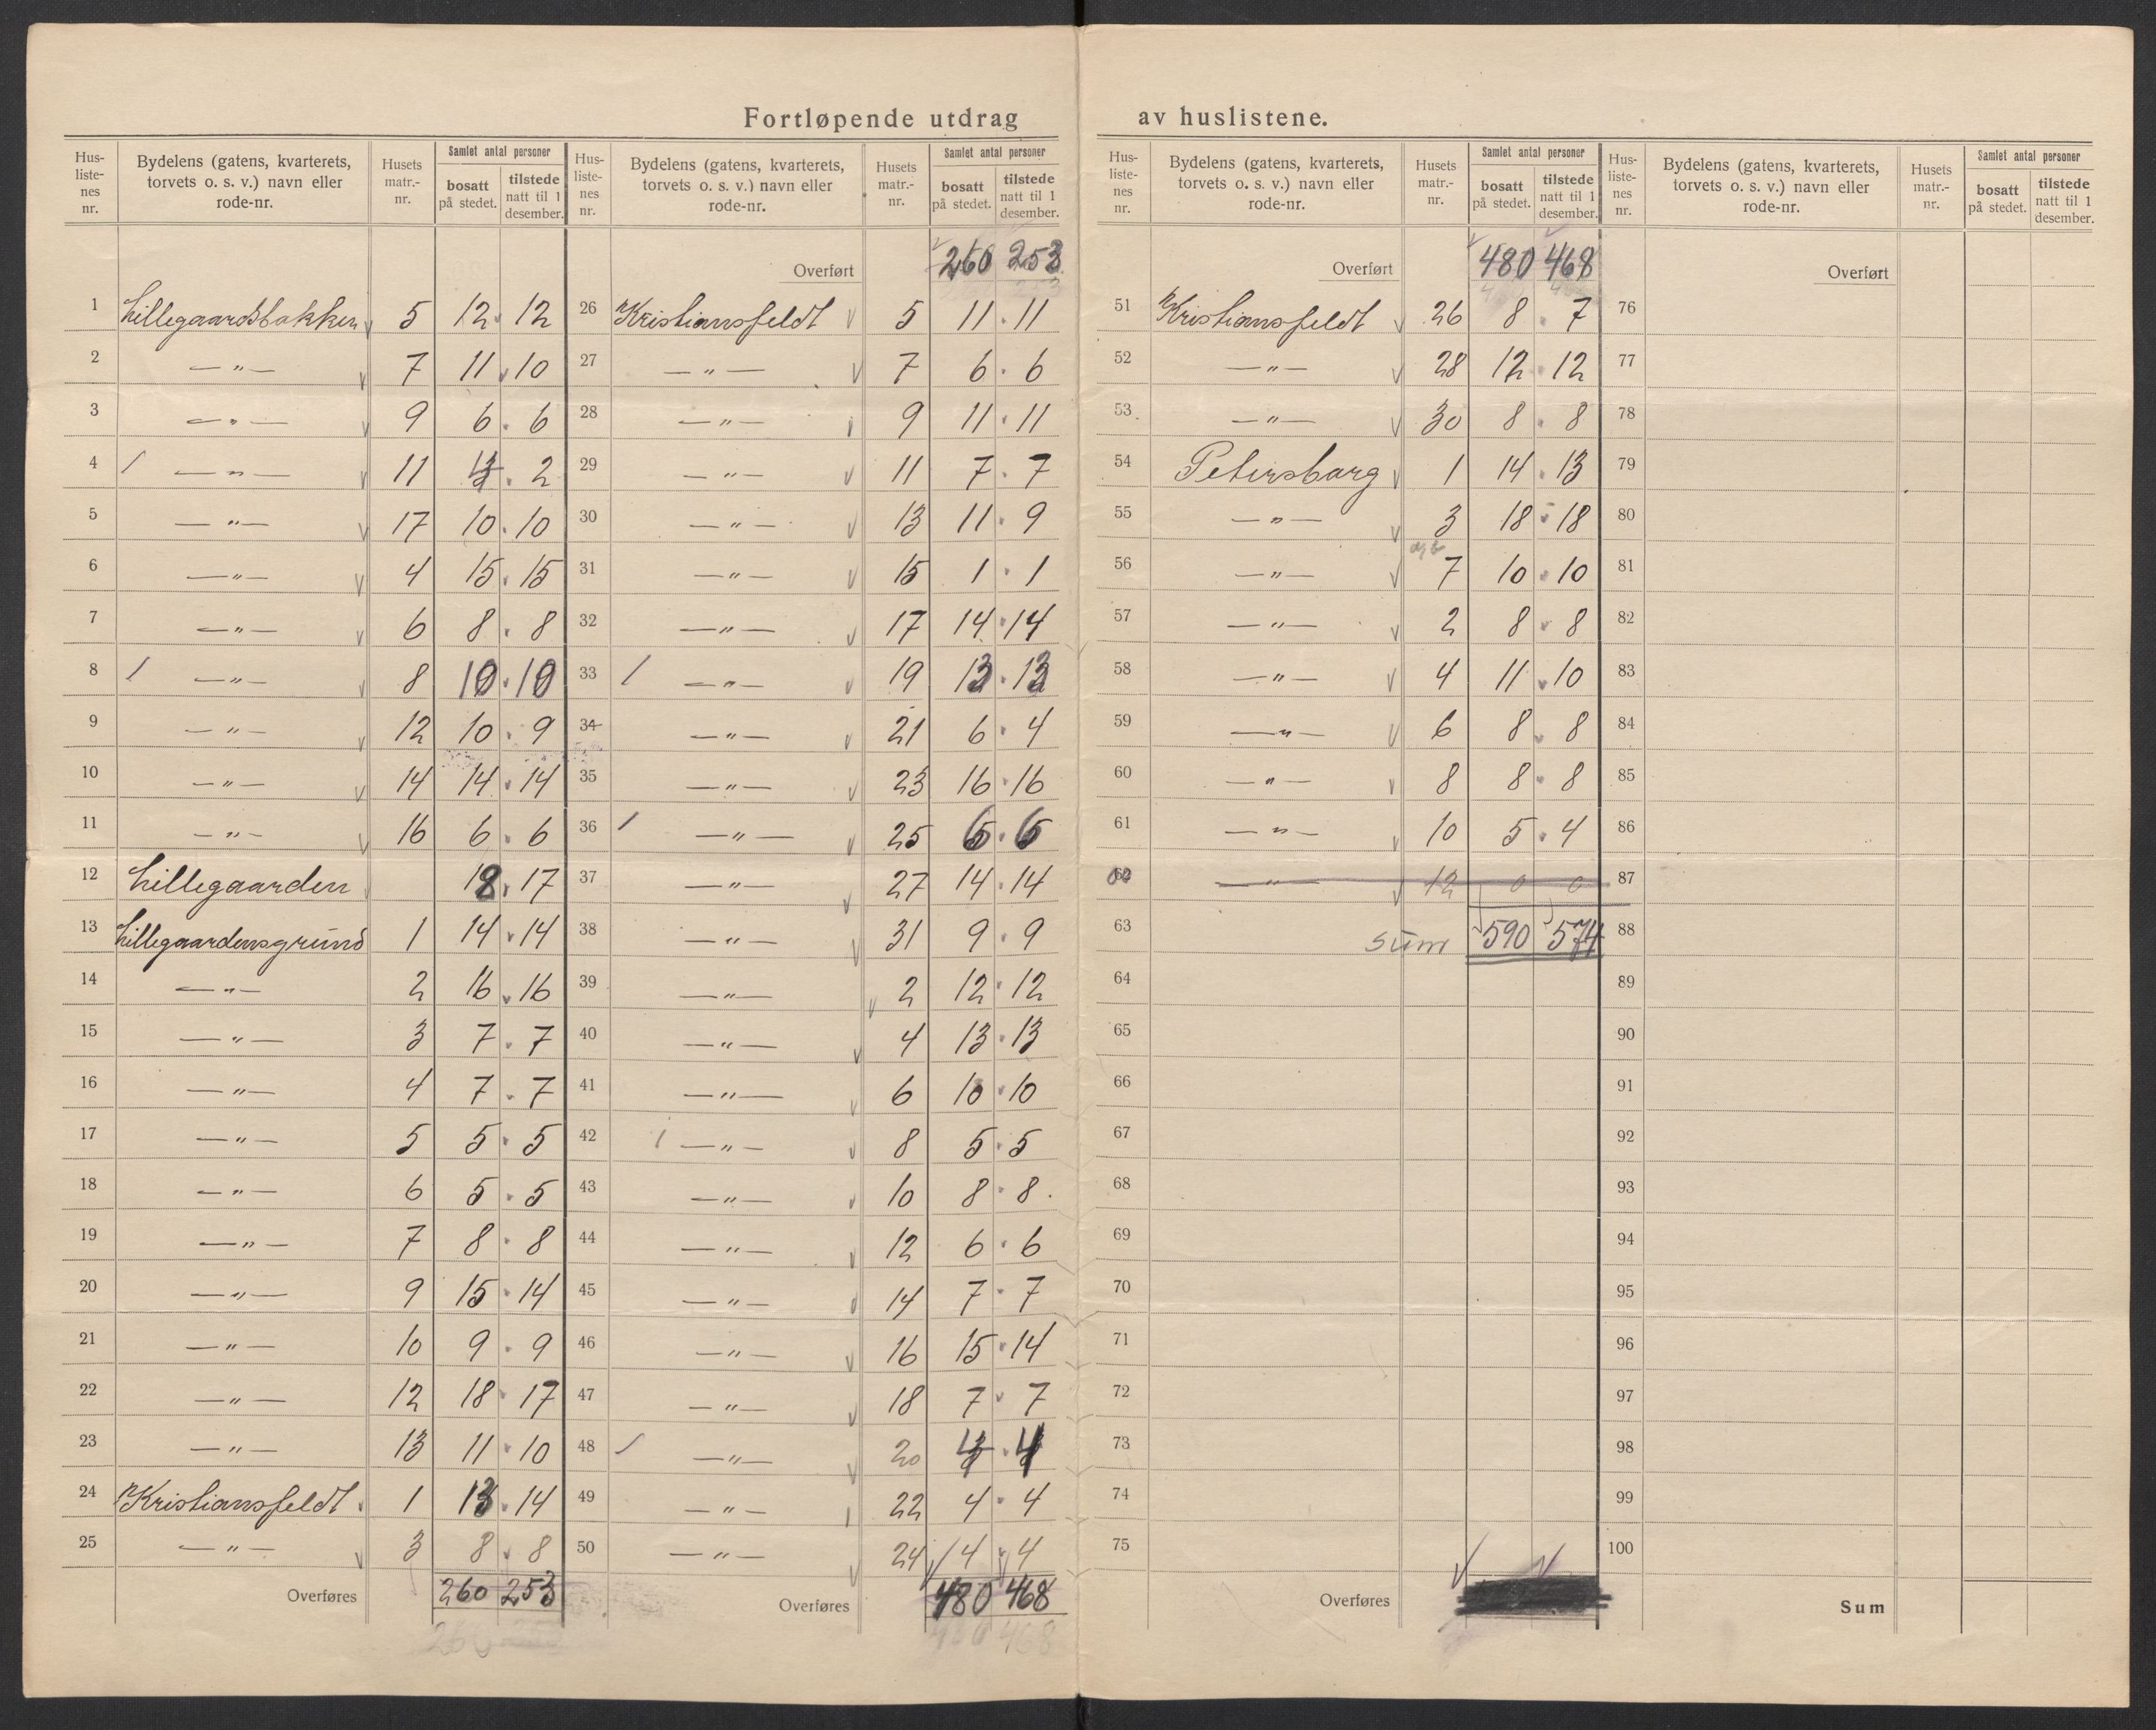 Fortløpende utdrag av huslistene.
Hus-listenes nr. Bydelens (gatens, kvarterets, torvets o. s. v.) navn eller rode-nr. Husets matr.-nr. Samlet antal personer bosatt på stedet. tilstede natt til 1 desember.
1 Lillegaardsbakken 5 12 12
2 — " — 7 11 10
3 — " — 9 6 6
4 — " — 11 2
5 — " — 17 10 10
6 — " — 4 15 15
7 — " — 6 8 8
8 — " — 8 10 10
9 — " — 12 10 9
10 — " — 14 14 14
11 — " — 16 6 6
12 Lillegaarden 18 17
13 Lillegaardensgrund 1 14 14
14 — " — 2 16 16
15 — " — 3 7 7
16 — " — 4 7 7
17 — " — 5 5 5
18 — " — 6 5 5
19 — " — 7 8 8
20 — " — 9 15 14
21 — " — 10 9 9
22 — " — 12 18 17
23 — " — 13 11 10
24 Kristiansfeldt 1 13 14
25 — " — 3 8 8
Overføres 260 253
Hus-listenes nr. Bydelens (gatens, kvarterets, torvets o. s. v.) navn eller rode-nr. Husets matr.-nr. Samlet antal personer bosatt på stedet. tilstede natt til 1 desember.
Overført 260 253
26 Kristiansfeldt 5 11 11
27 — " — 7 6 6
28 — " — 9 11 11
29 — " — 11 7 7
30 — " — 13 11 9
31 — " — 15 1 1
32 — " — 17 14 14
33 — " — 19 13 13
34 — " — 21 6 4
35 — " — 23 16 16
36 — " — 25
37 — " — 27 14 14
38 — " — 31 9 9
39 — " — 2 12 12
40 — " — 4 13 13
41 — " — 6 10 10
42 — " — 8 5 5
43 — " — 10 8 8
44 — " — 12 6 6
45 — " — 14 7 7
46 — " — 16 15 14
47 — " — 18 7 7
48 — " — 20 4 4
49 — " — 22 4 4
50 — " — 24 4 4
Overføres 480 468
Hus-listenes nr. Bydelens (gatens, kvarterets, torvets o. s. v.) navn eller rode-nr. Husets matr.-nr. Samlet antal personer bosatt på stedet. tilstede natt til 1 desember.
Overført 480 468
51 Kristiansfeldt 26 8 7
52 — " — 28 12 12
53 — " — 30 8 8
54 Petersborg 1 14 13
55 — " — 3 18 18
56 — " — 7 10 10
57 — " — 2 8 8
58 — " — 4 11 10
59 — " — 6 8 8
60 — " — 8 8 8
61 — " — 10 5 4
62 — " — 12 0 0
63 Sum 590 574
64
65
66
67
68
69
70
71
72
73
74
75
Overføres
Hus-listenes nr. Bydelens (gatens, kvarterets, torvets o. s. v.) navn eller rode-nr. Husets matr.-nr. Samlet antal personer bosatt på stedet. tilstede natt til 1 desember.
Overført
76
77
78
79
80
81
82
83
84
85
86
87
88
89
90
91
92
93
94
95
96
97
98
99
100
Sum